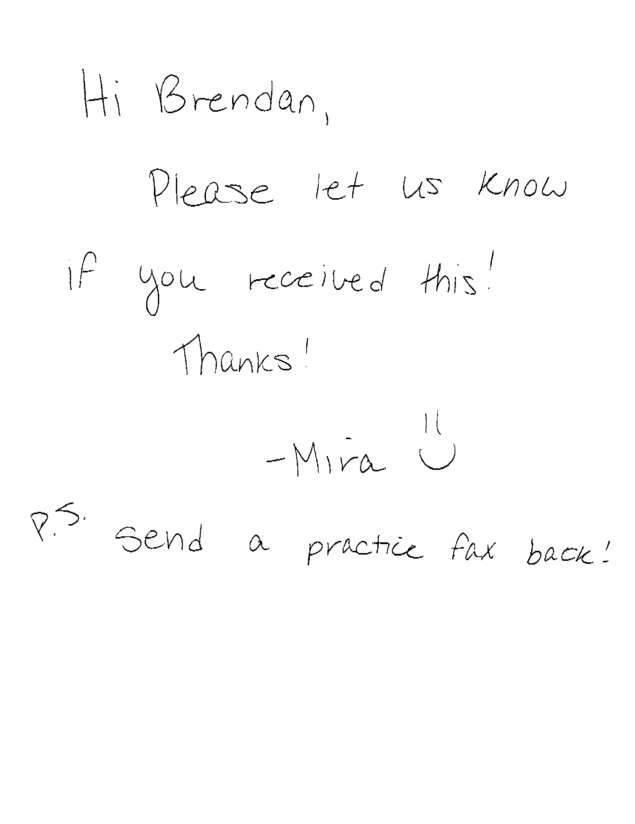 Hi Brendan,
Please let us know
if you received this!
Thanks!
-Mira
P.S. Send a practice fax back!